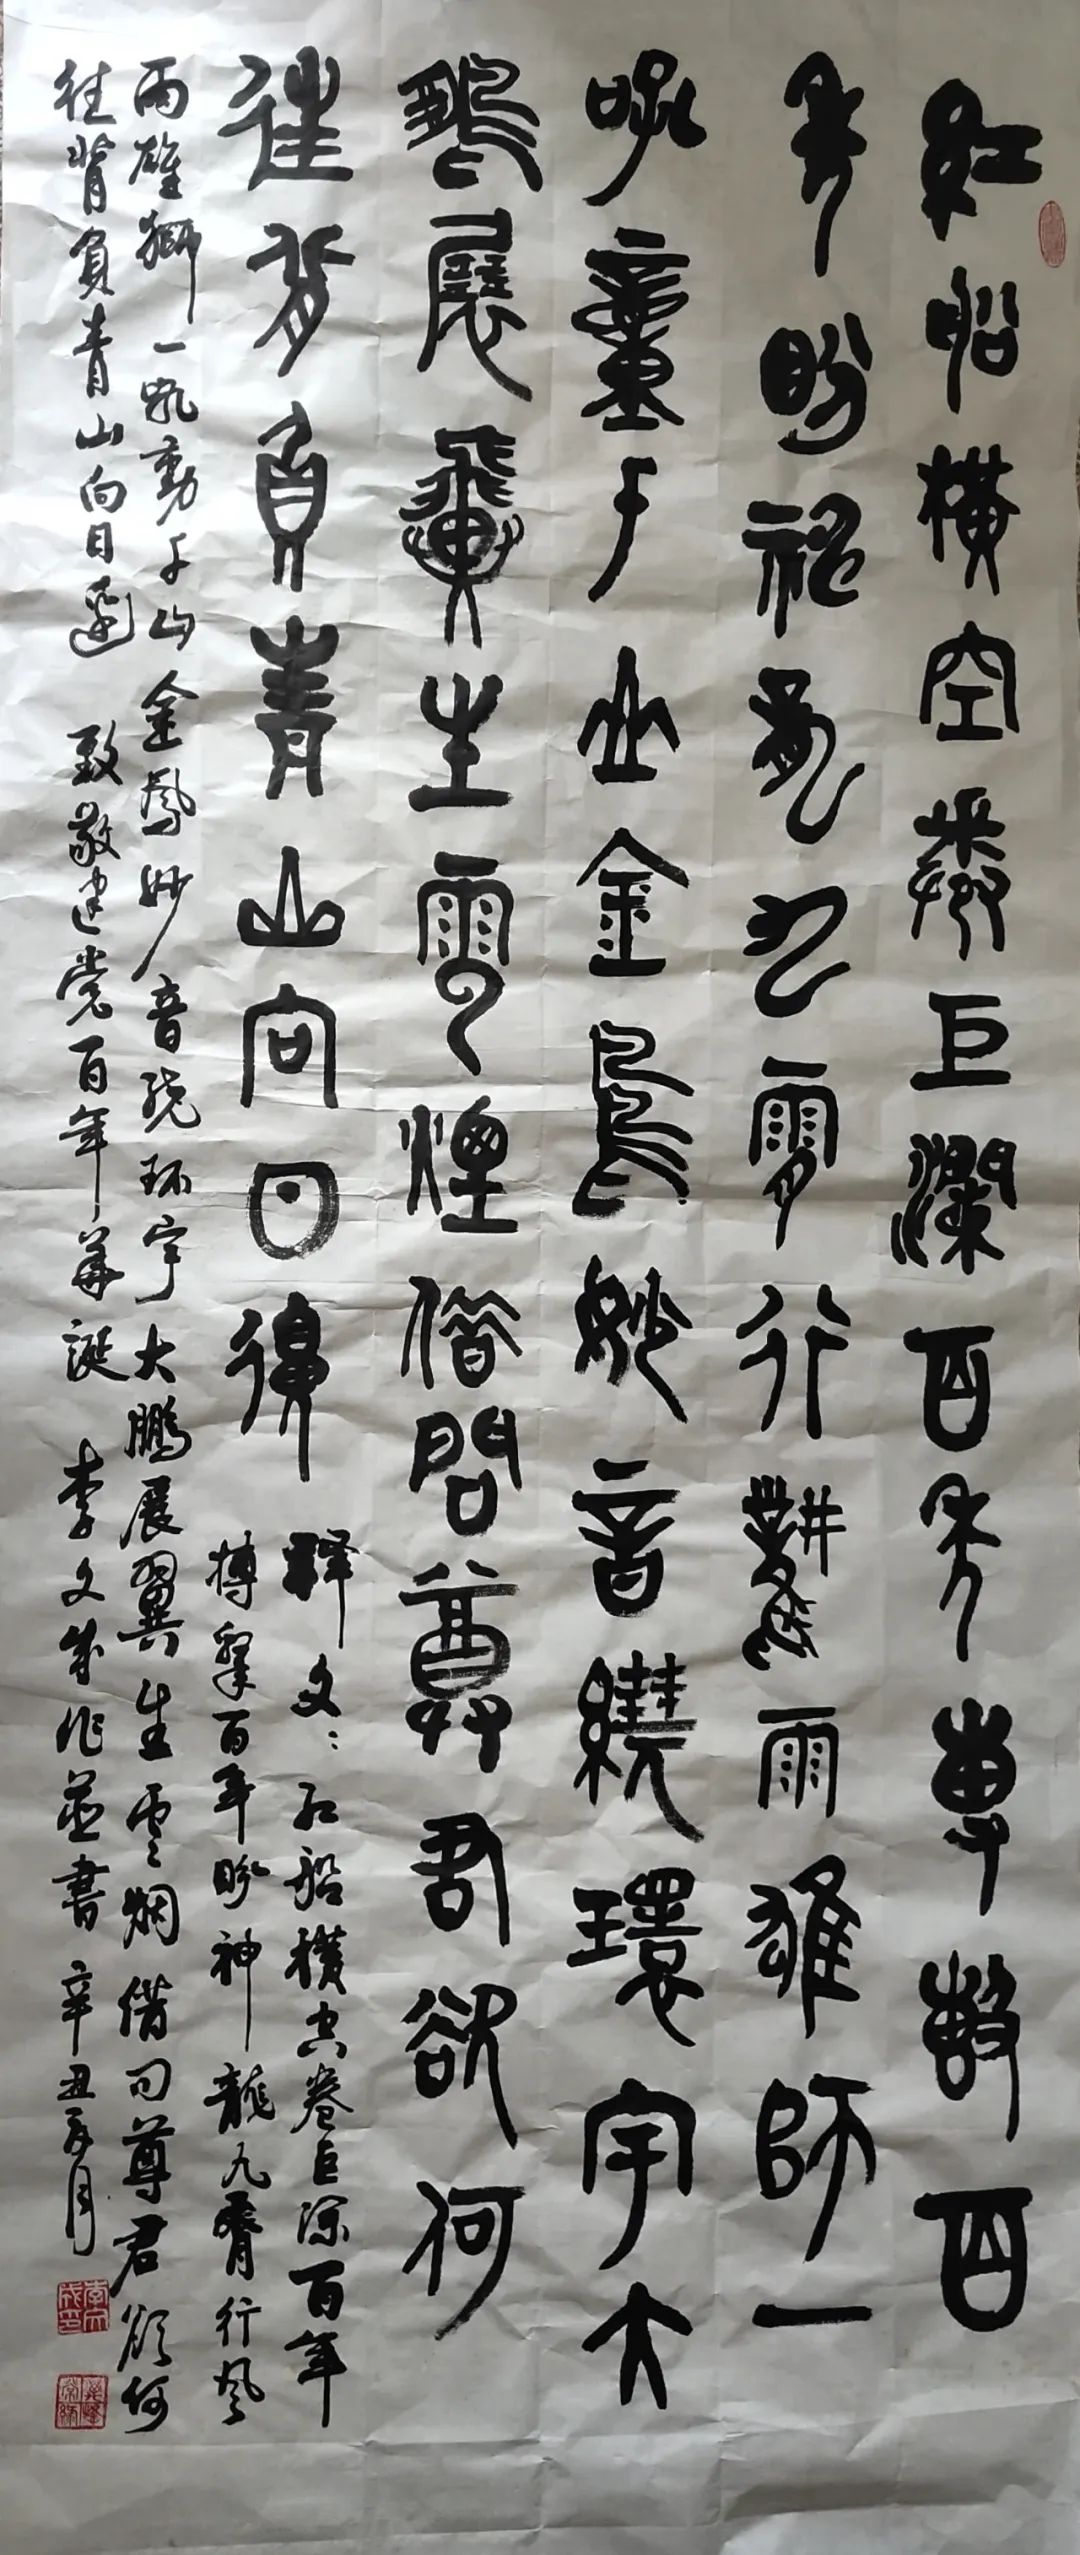 紅船橫空卷巨瀾百年尃毄百
年盼神龍九霄行風雨雄師一
吼童千山金鳳妙音繞環宇大
鵬展翼生雲煙借問尊君欲何
往背負青山向日邊
释文：红船横空卷巨澜百年
搏擊百年盼神龍九霄行风
雨雄獅一吼動千山金鳳妙音绕环宇大鵬展翼生雲烟借问尊君欲何
往背負青山向日邊 致敬建党百年華誕 李文成作並書 辛丑月
李文成印